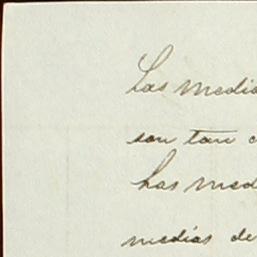 Las medias
son tan
Las med
medias de